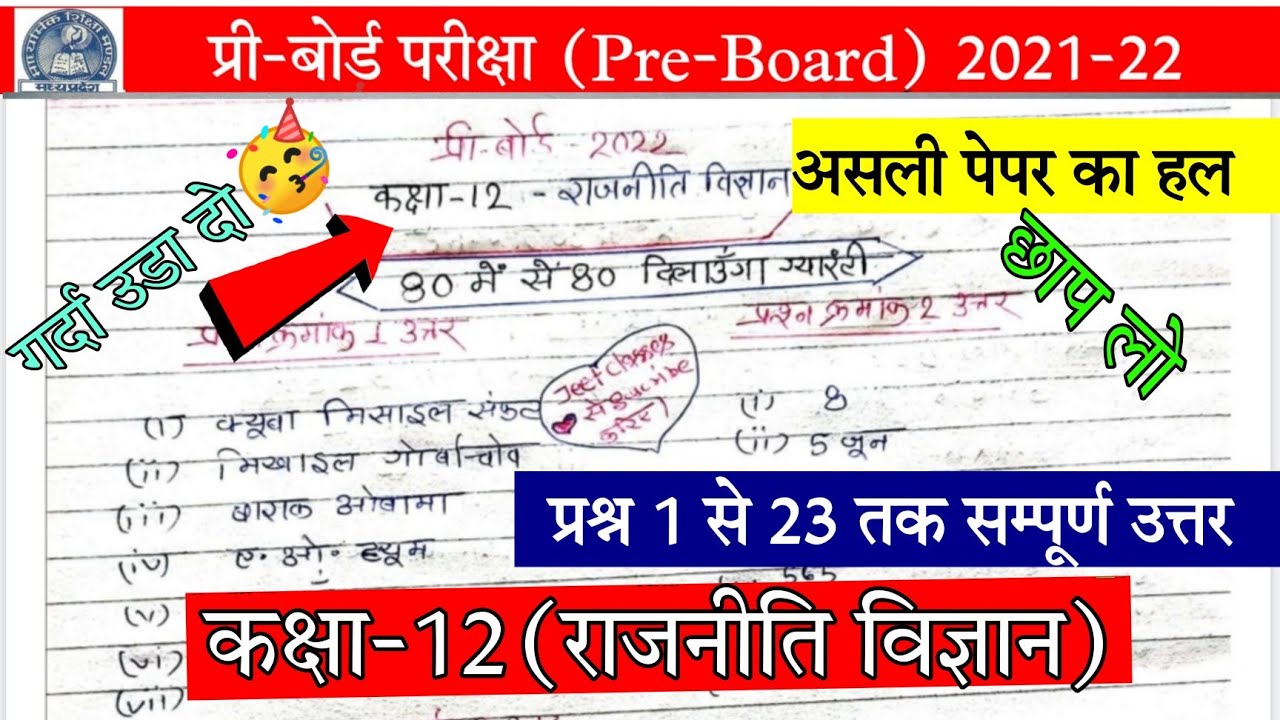 माध्यमिक शिक्षा मण्डल
मध्यप्रदेश
प्री-बोर्ड परीक्षा (Pre-Board) 2021-22
प्री-बोर्ड - 2022
कक्षा-12 - राजनीति विज्ञान
असली पेपर का हल
गर्दा उडा दो
छाप लो
80 में से 80 दिलाऊँगा ग्यारंटी
क्रमांक 1 उत्तर
प्रश्न क्रमांक 2 उत्तर
Jeet Classes
से
करिए।
(i) क्यूबा मिसाइल संकट
(ii) मिखाइल गोर्बाचोव
(iii) बाराक ओबामा
(iv) ए. ओ. ह्यूम
(v)
(vi)
(vii)
(i) 8
(ii) 5 जून
565
प्रश्न 1 से 23 तक सम्पूर्ण उत्तर
कक्षा-12(राजनीति विज्ञान)